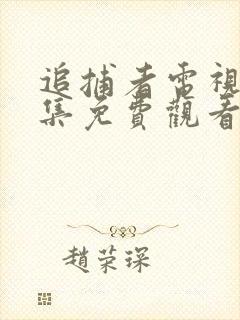 追捕者電視
集免費觀看
趙荣琛